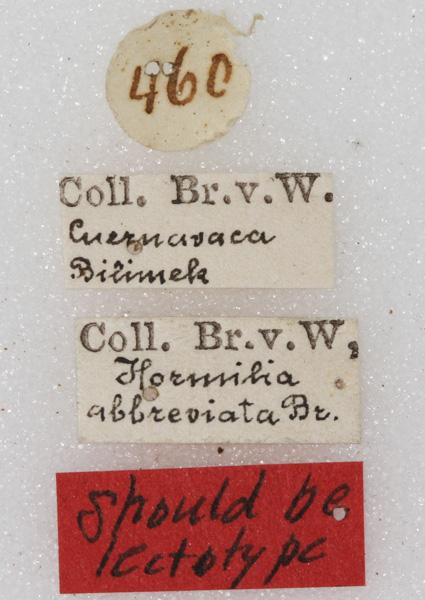 460
Coll. Br.v.W.
Cuernavaca
Bilimek
Coll. Br.v.W,
Hormilia
abbreviata Br.
Should be
lectotype